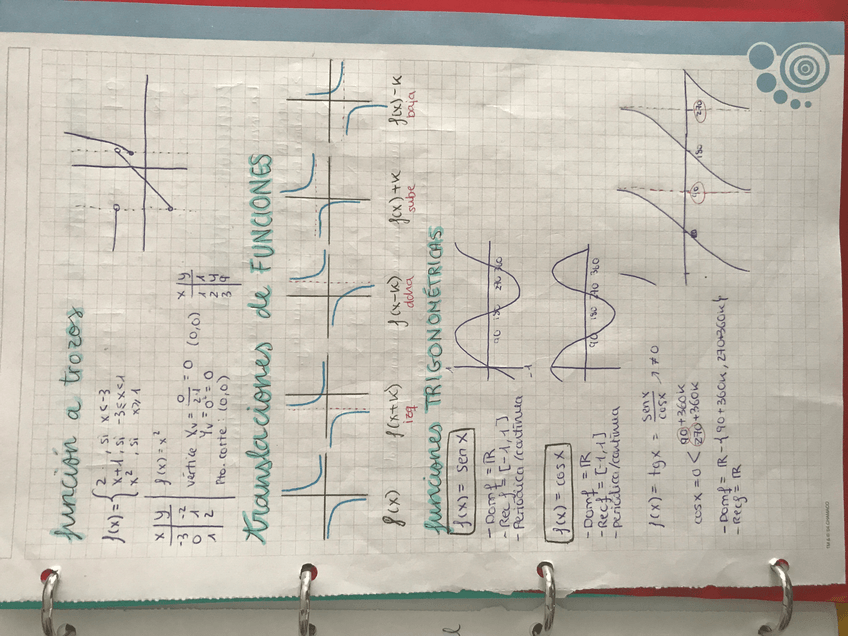 función a trozos
f(x)= { 2 , si x<-3
x+1 , si -3≤x<1
x² , si x≥1
x | y
-3 | -2
0 | 1
1 | 2
f(x)=x²
vértice Xv = 0/2·1 = 0
Yv = 0² = 0
(0,0)
Pto. corte: (0,0)
x | y
1 | 1
2 | 4
3 | 9
translaciones de FUNCIONES
f(x) f(x+k) f(x-k) f(x)+k f(x)-k
izq dcha sube baja
funciones TRIGONOMÉTRICAS
f(x) = sen x
- Dom f = IR
- Rec f = [-1,1]
- Periódica/continua
1
-1
90 180 270 360
f(x) = cos x
- Dom f = IR
- Rec f = [-1,1]
- periódica/continua
90 180 270 360
f(x) = tg x = sen x / cos x , ≠0
cos x = 0 < 90+360k
270+360k
- Dom f = IR - {90+360k, 270+360k}
- Rec f = IR
0 90 180 270